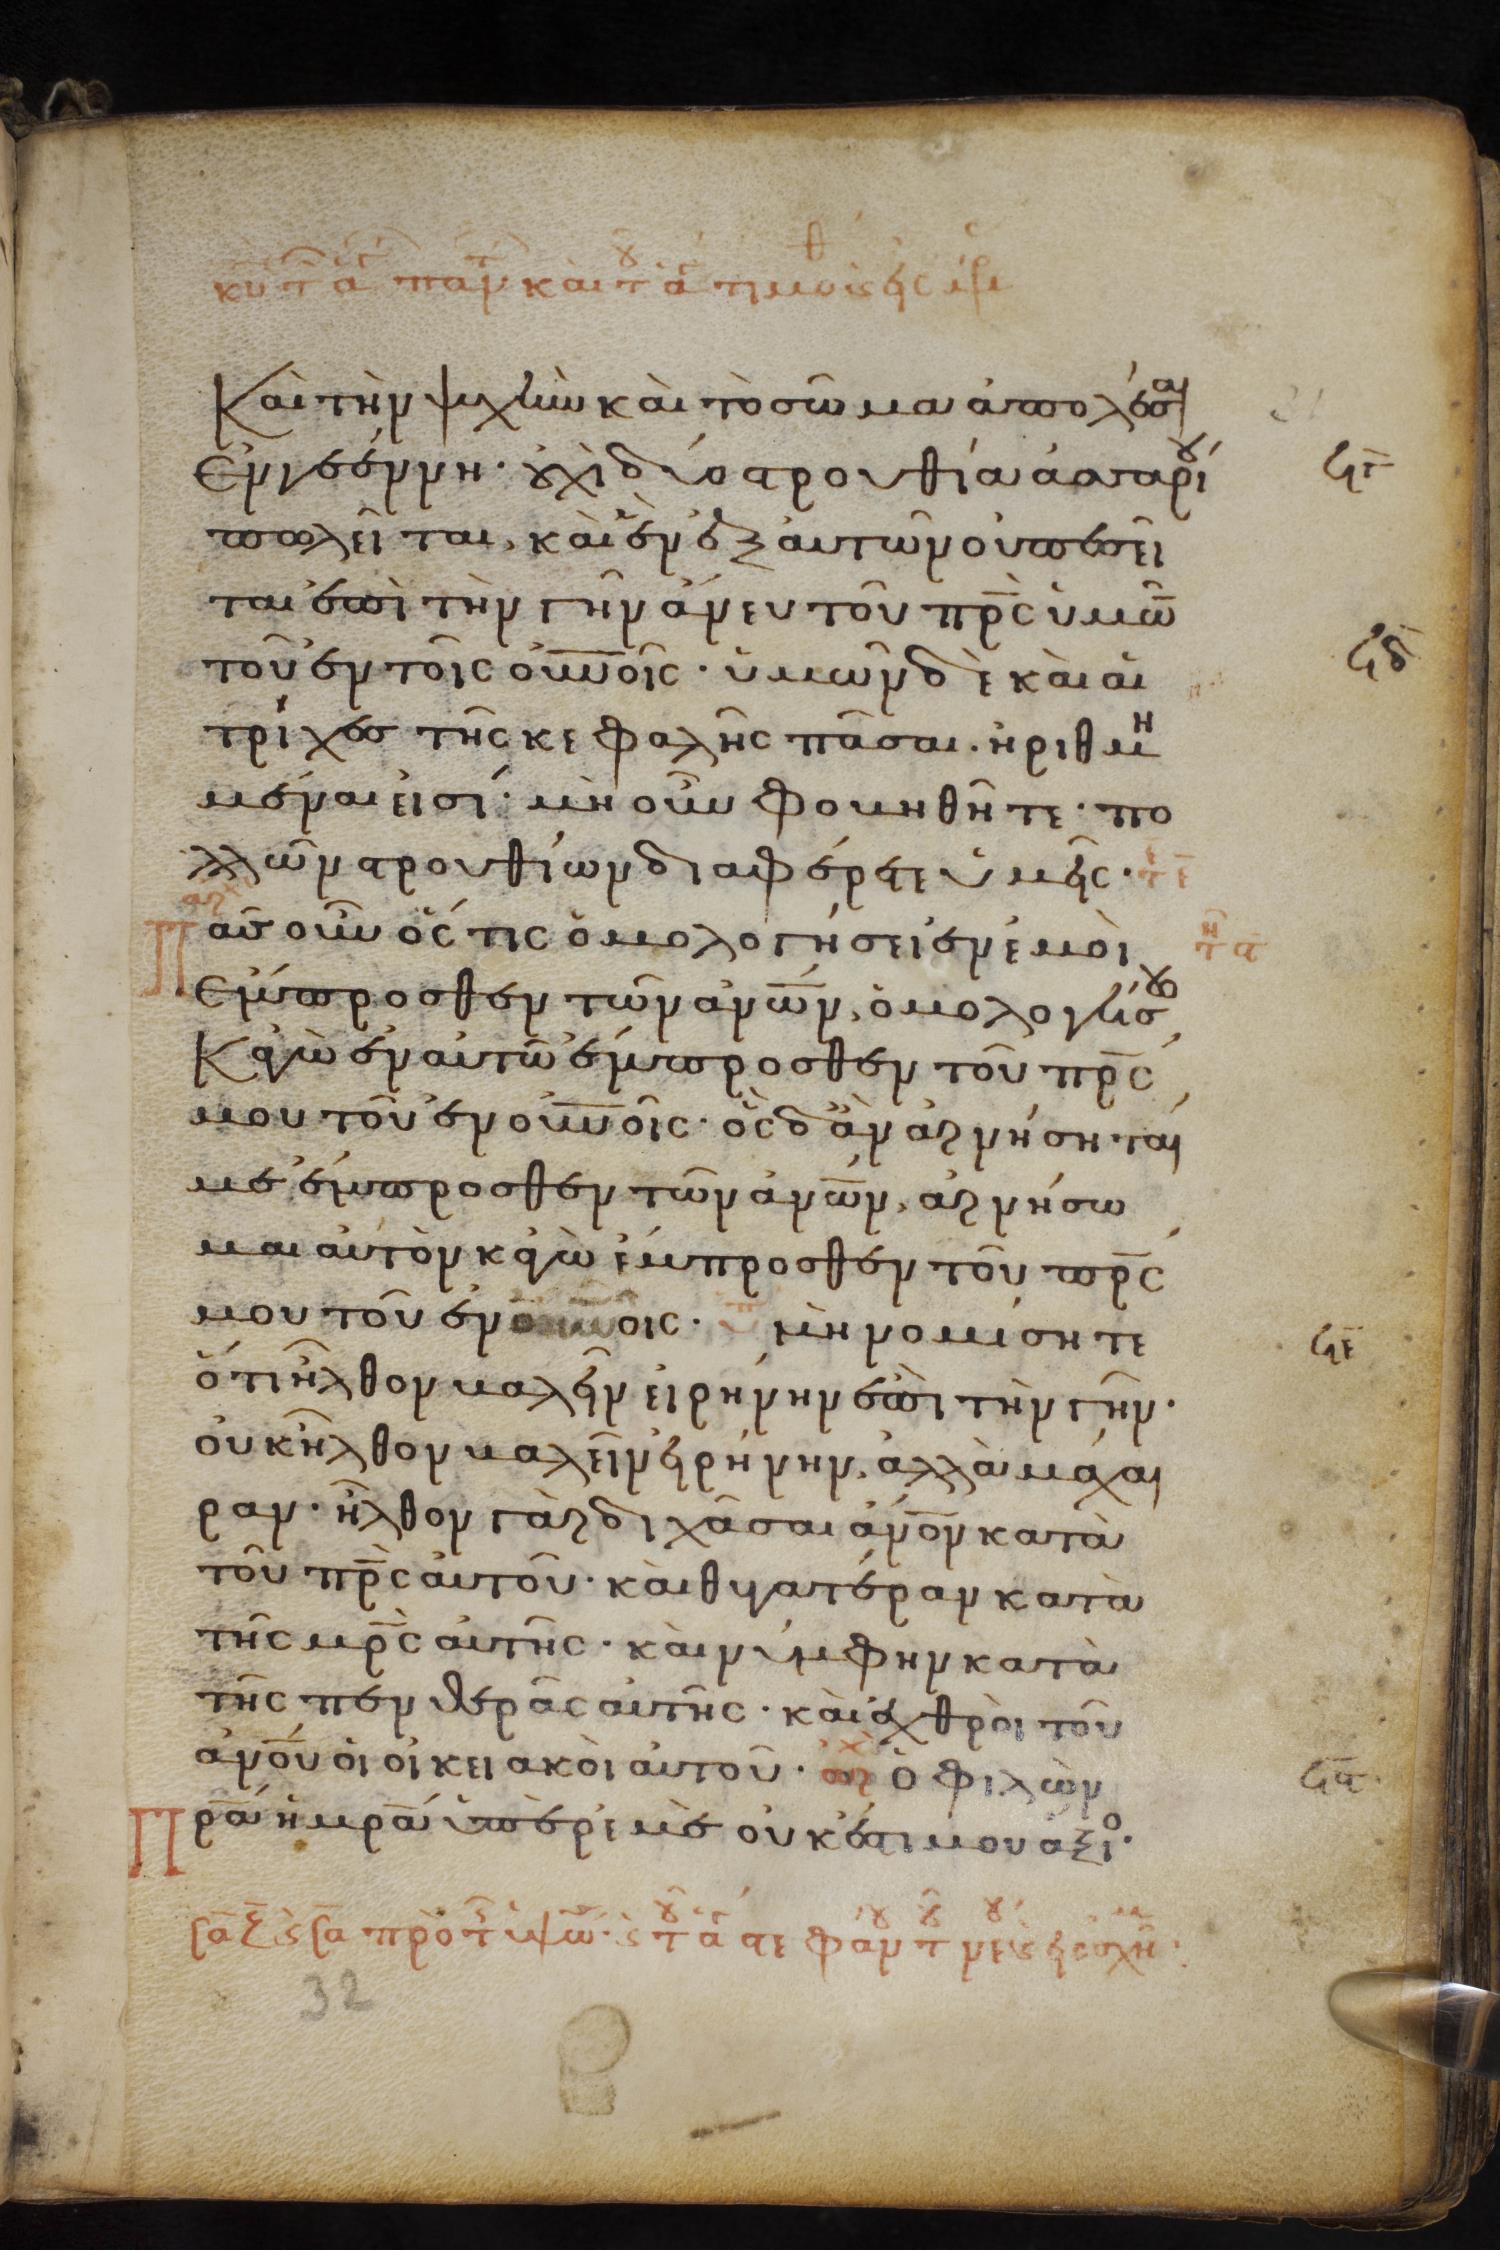 Καὶ τὴν ψυχὴν καὶ τὸ σῶμα ἀπολέσαι
ἐν γεέννη· οὐχὶ δύο στρουθία ἀσσαρίου
πωλεῖται, καὶ ἓν ἐξ αὐτῶν οὐ πεσεῖ
ται ἐπὶ τὴν γῆν ἄνευ τοῦ πρ̅ς ὑμῶν
τοῦ ἐν τοῖς οὐν̅οῖς· ὑμῶν δὲ καὶ αἱ
τρίχες τῆς κεφαλῆς πᾶσαι· ἠριθμη
μέναι εἰσί· μὴ οὖν φοβηθῆτε· πο
λλῶν στρουθίων διαφέρετε ὑμεῖς· τε
Πᾶσ οὖν ὅς τις ὁμολογήσει ἐν ἐμοὶ
ἔμπροσθεν τῶν ἀν̅ων, ὁμολογήσω
Κἀγὼ ἐν αὐτῶ ἔμπροσθεν τοῦ πρ̅ς
μου τοῦ ἐν οὐν̅οῖς· ὃς δ ἂν ἀρνήσηται
με ἔμπροσθεν τῶν ἀν̅ων, ἀρνήσω
μαι αὐτὸν κἀγὼ ἔμπροσθεν τοῦ πρ̅ς
μου τοῦ ἐν οὐν̅οις· μὴ νομίσητε
ὅτι ἦλθον βαλεῖν εἰρήνην ἐπὶ τὴν γῆν·
οὐκ ἦλθον βαλεῖν εἰρήνην, ἀλλὰ μάχαι
ραν· ἦλθον γὰρ διχᾶσαι ἄν̅ον κατὰ
τοῦ πρ̅ς αὐτοῦ· καὶ θυγατέραν κατὰ
τῆς μρ̅ς αὐτῆς· καὶ νύμφην κατὰ
τῆς πενθερᾶς αὐτῆς· καὶ ἐχθροὶ τοῦ
ἀν̅ου οἱ οἰκειακοὶ αὐτοῦ· ὁ φιλῶν
πρ̅α ἢ μρ̅α ὑπὲρ ἐμὲ οὐκ ἔστι μου ἄξιο·
32